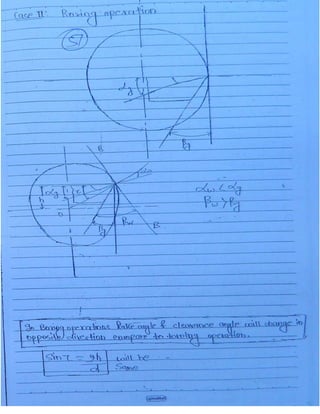 Case II: Boring operation
57
αg
βg
B
αw
αg
αw < αg
βw > βg
βw
βg
B
In Boring operations Rake angle & clearance angle will change in
opposite direction compare to turning operation.
sin τ = 2h
d
will be
Same